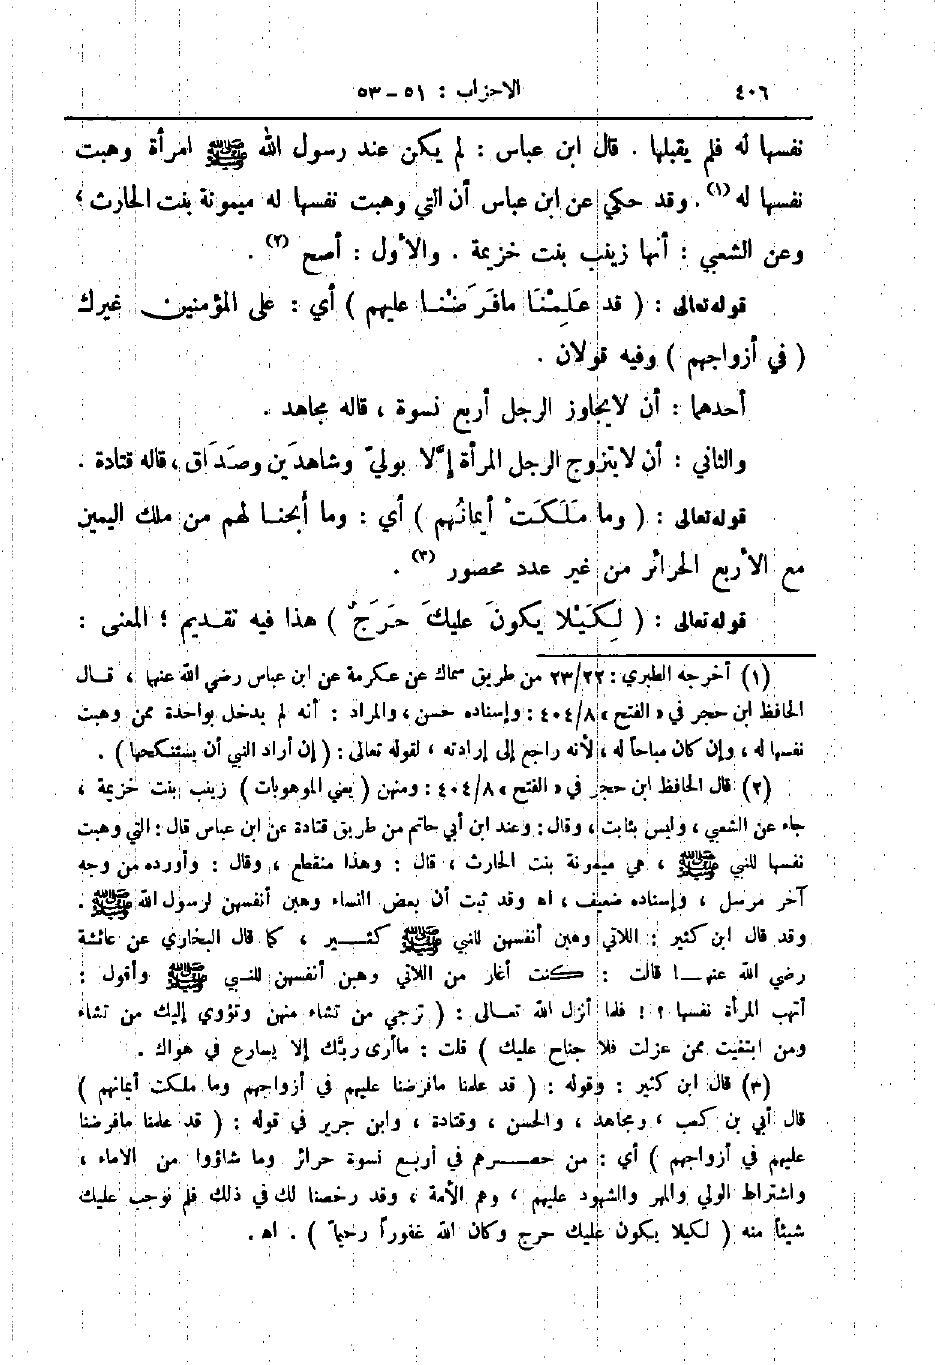 ٤٠٦ الاحزاب : ٥١ – ٥٣
نفسها له فلم يقبلها . قال ابن عباس : لم يكن عند رسول الله ﷺ امرأة وهبت
نفسها له (١) . وقد حكي عن ابن عباس أن التي وهبت نفسها له ميمونة بنت الحارث ؛
وعن الشعبي : أنها زينب بنت خزيمة . والأول : أصح (٢) .
قوله تعالى : ( قد عَلِمْنَا مافَرَضْنا عليهم ) أي : على المؤمنين غيرك
( في أزواجهم ) وفيه قولان .
أحدهما : أن لايجاوز الرجل أربع نسوة ، قاله مجاهد .
والثاني : أن لايتزوج الرجل المرأة إلَّا بوليّ وشاهدَين وصَدَاق ، قاله قتادة .
قوله تعالى : ( وما مَلَكَتْ أيمانُهم ) أي : وما أبحنا لهم من ملك اليمين
مع الأربع الحرائر من غير عدد محصور (٣) .
قوله تعالى : ( لِكَيْلا يكونَ عليكَ حَرَجٌ ) هذا فيه تقديم ؛ المعنى :
(١) أخرجه الطبري : ٢٣/٢٢ من طريق سماك عن عكرمة عن ابن عباس رضي الله عنهما ، قال
الحافظ ابن حجر في « الفتح » ٤٠٤/٨ : وإسناده حسن ، والمراد : أنه لم يدخل بواحدة ممن وهبت
نفسها له ، وإن كان مباحاً له ، لأنه راجع إلى إرادته ، لقوله تعالى : ( إن أراد النبي أن يستنكحها ) .
(٢) قال الحافظ ابن حجر في « الفتح » ٤٠٤/٨ : ومنهن ( يعني الموهوبات ) زينب بنت خزيمة ،
جاء عن الشعبي ، وليس بثابت ، وقال : وعند ابن أبي حاتم من طريق قتادة عن ابن عباس قال : التي وهبت
نفسها للنبي ﷺ ، هي ميمونة بنت الحارث ، قال : وهذا منقطع ، وقال : وأورده من وجه
آخر مرسل ، وإسناده ضعيف ، اه وقد ثبت أن بعض النساء وهبن أنفسهن لرسول الله ﷺ .
وقد قال ابن كثير : اللاتي وهبن أنفسهن للنبي ﷺ كثير ، كما قال البخاري عن عائشة
رضي الله عنها قالت : كنت أغار من اللاتي وهبن أنفسهن للنبي ﷺ وأقول :
أتهب المرأة نفسها ؟ ! فلما أنزل الله تعالى : ( ترجي من تشاء منهن وتؤوي إليك من تشاء
ومن ابتغيت ممن عزلت فلا جناح عليك ) قلت : ماأرى ربَّك إلا يسارع في هواك .
(٣) قال ابن كثير : وقوله : ( قد علمنا مافرضنا عليهم في أزواجهم وما ملكت أيمانهم )
قال أبي بن كعب ، ومجاهد ، والحسن ، وقتادة ، وابن جرير في قوله : ( قد علمنا مافرضنا
عليهم في أزواجهم ) أي : من حصرهم في أربع نسوة حرائر وما شاؤوا من الاماء ،
واشتراط الولي والمهر والشهود عليهم ، وهم الأمة ، وقد رخصنا لك في ذلك فلم نوجب عليك
شيئاً منه ( لكيلا يكون عليك حرج وكان الله غفوراً رحيماً ) . اه .